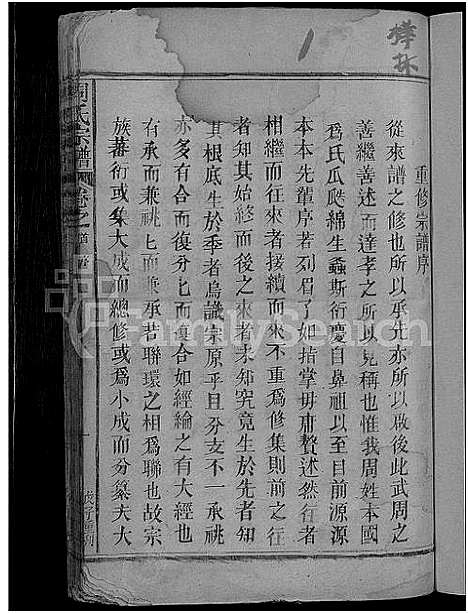 樟林
重修宗譜序
從來譜之修也所以承先亦所以啟後此武周之
善繼善述而達孝之所以見稱也惟我周姓本國
爲氏瓜瓞綿生螽斯衍慶自鼻祖以至目前源源
本本先輩序若列眉了如指掌毋庸贅述然行者
相繼而往來者接續而來不重爲修集則前之往
者知其始終而後之來者未知究竟生於先者知
其根底生於季者烏識宗原乎且分支不一承祧
亦多有合而復分匕而眞合如經綸之有大經也
有承而兼祧匕而兼承若聯環之相爲聯也故宗
族蕃衍或集大成而總修或爲小成而分纂夫大
周氏宗譜
卷之首
FamilySearch